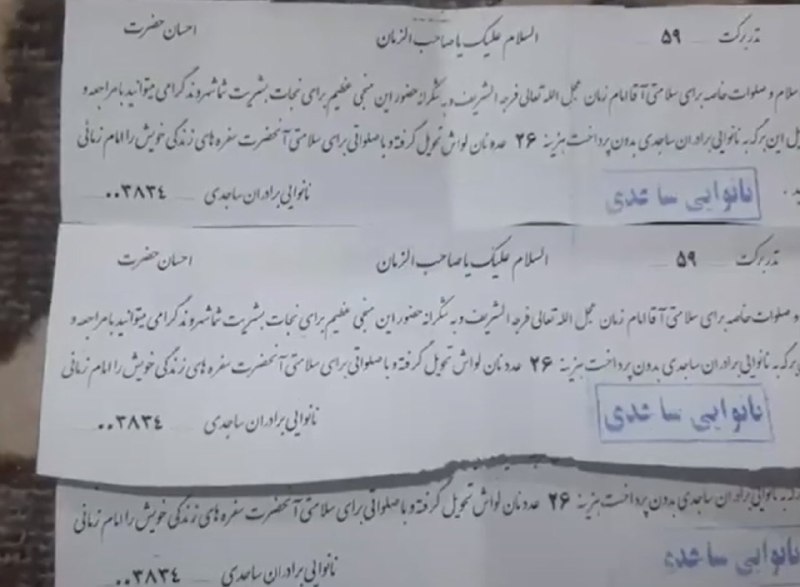 نذر برکت ۵۹ السلام علیک یا صاحب الزمان احسان حضرت
سلام و صلوات خاصه برای سلامتی آقا امام زمان عجل الله تعالی فرجه الشریف و به شکرانه حضور این منجی عظیم برای نجات بشریت شما شهروند گرامی میتوانید با مراجعه و
این برگه به نانوایی برادران ساجدی بدون پرداخت هزینه ۲۶ عدد نان لواش تحویل گرفته و با صلواتی برای سلامتی آنحضرت سفره های زندگی خویش را امام زمانی
نانوایی ساجدی
نانوایی برادران ساجدی ۰۰۳۸۳۴
نذر برکت ۵۹ السلام علیک یا صاحب الزمان احسان حضرت
و صلوات خاصه برای سلامتی آقا امام زمان عجل الله تعالی فرجه الشریف و به شکرانه حضور این منجی عظیم برای نجات بشریت شما شهروند گرامی میتوانید با مراجعه و
برگه به نانوایی برادران ساجدی بدون پرداخت هزینه ۲۶ عدد نان لواش تحویل گرفته و با صلواتی برای سلامتی آنحضرت سفره های زندگی خویش را امام زمانی
نانوایی ساجدی
نانوایی برادران ساجدی ۰۰۳۸۳۴
به نانوایی برادران ساجدی بدون پرداخت هزینه ۲۶ عدد نان لواش تحویل گرفته و با صلواتی برای سلامتی آنحضرت سفره های زندگی خویش را امام زمانی
نانوایی ساجدی
نانوایی برادران ساجدی ۰۰۳۸۳۴